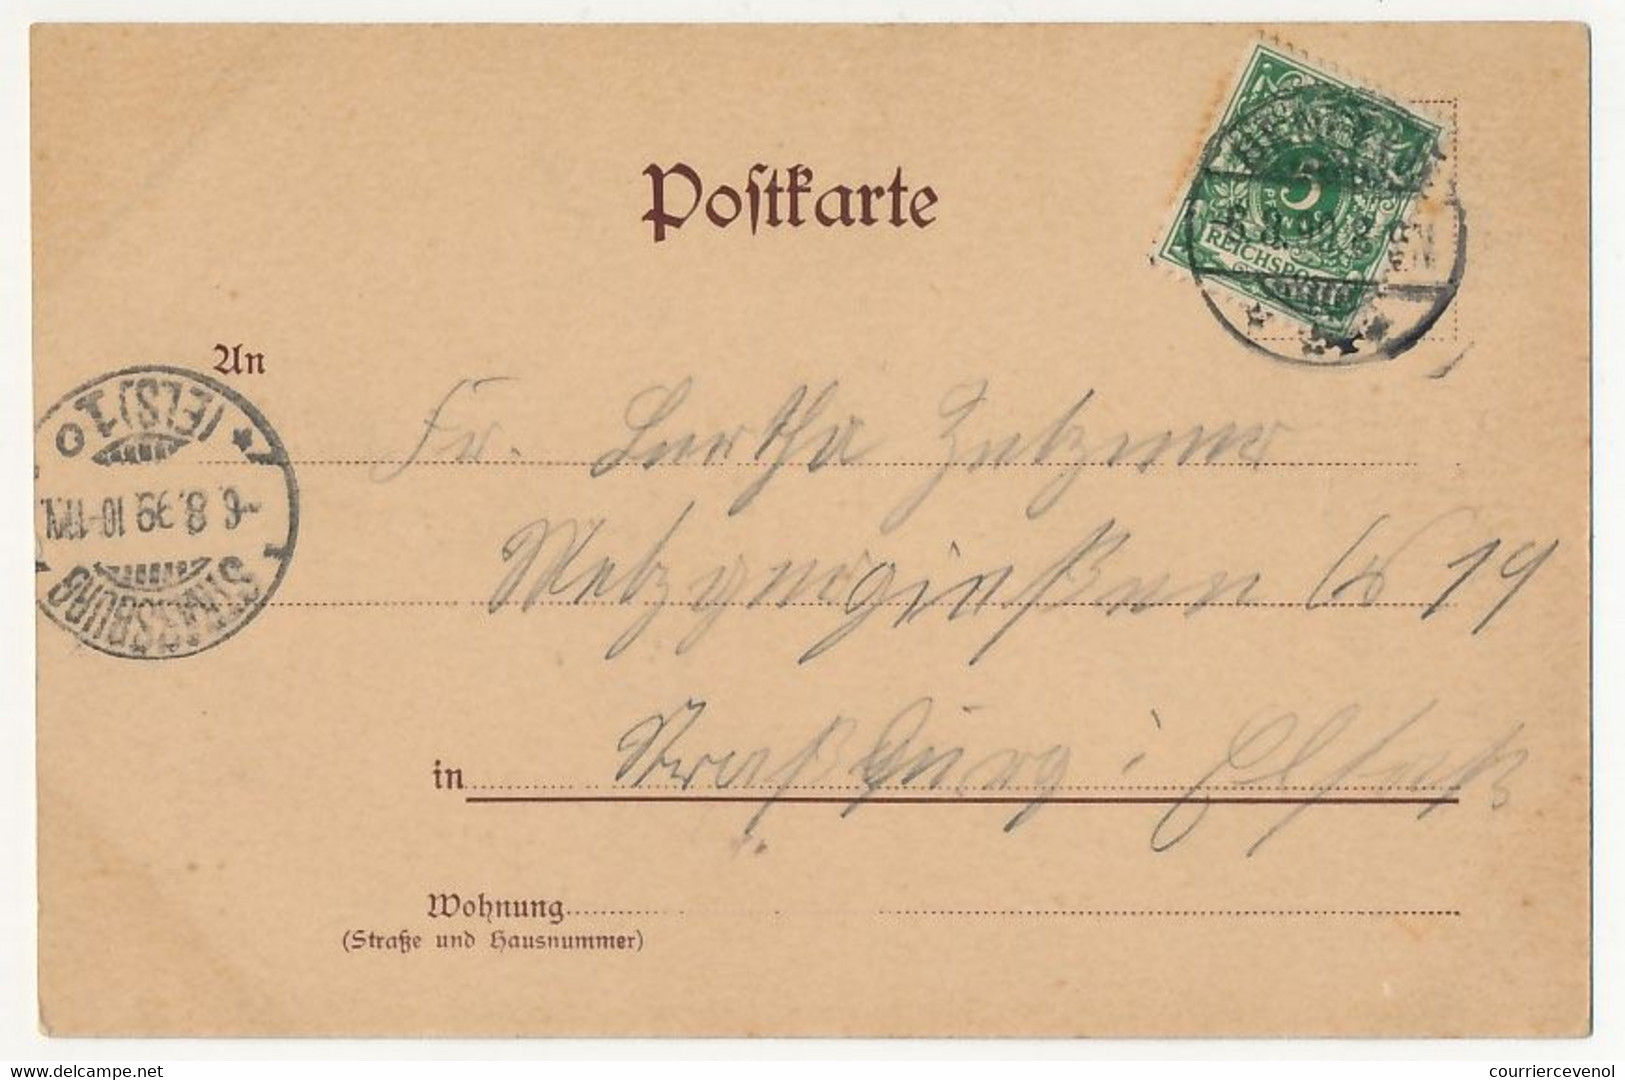 Postkarte
5
PF
REICHSPOST
8.99.
An
(ELS) 1
6.8.99.10-11N.
STRASSBURG
Fr. Bertha
19
in Straßburg i Elsaß
Wohnung
(Straße und Hausnummer)
www.delcampe.net
courriercevenol